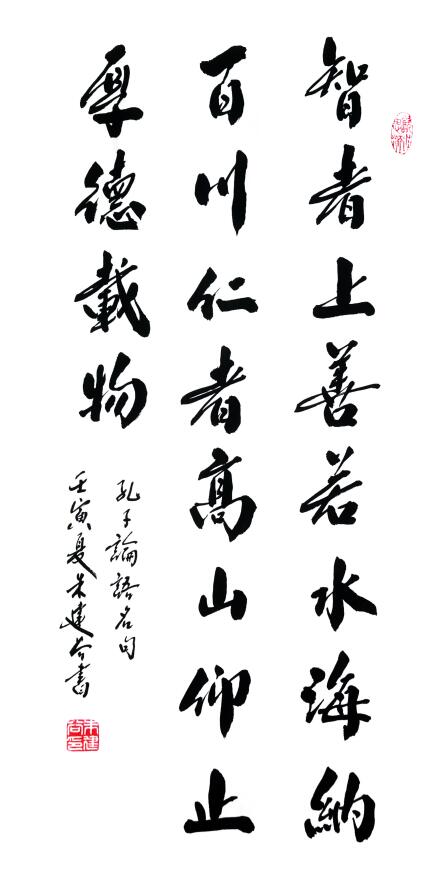 智者上善若水海納
百川仁者高山仰止
厚德載物
孔子論語名句
壬寅夏朱建谷書